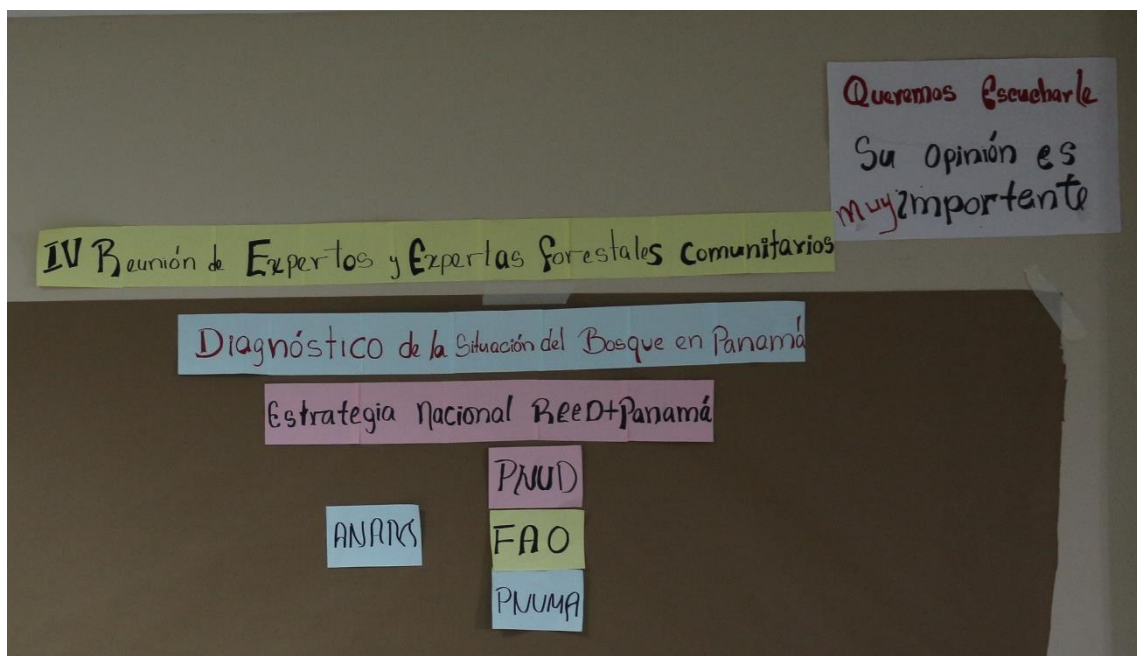 Queremos Escucharle
Su Opinión es
muy importente
IV Reunión de Expertos y Expertas forestales Comunitarios
Diagnóstico de la Situación del Bosque en Panamá
Estrategia Nacional REED+Panamá
PNUD
ANAM
FAO
PNUMA